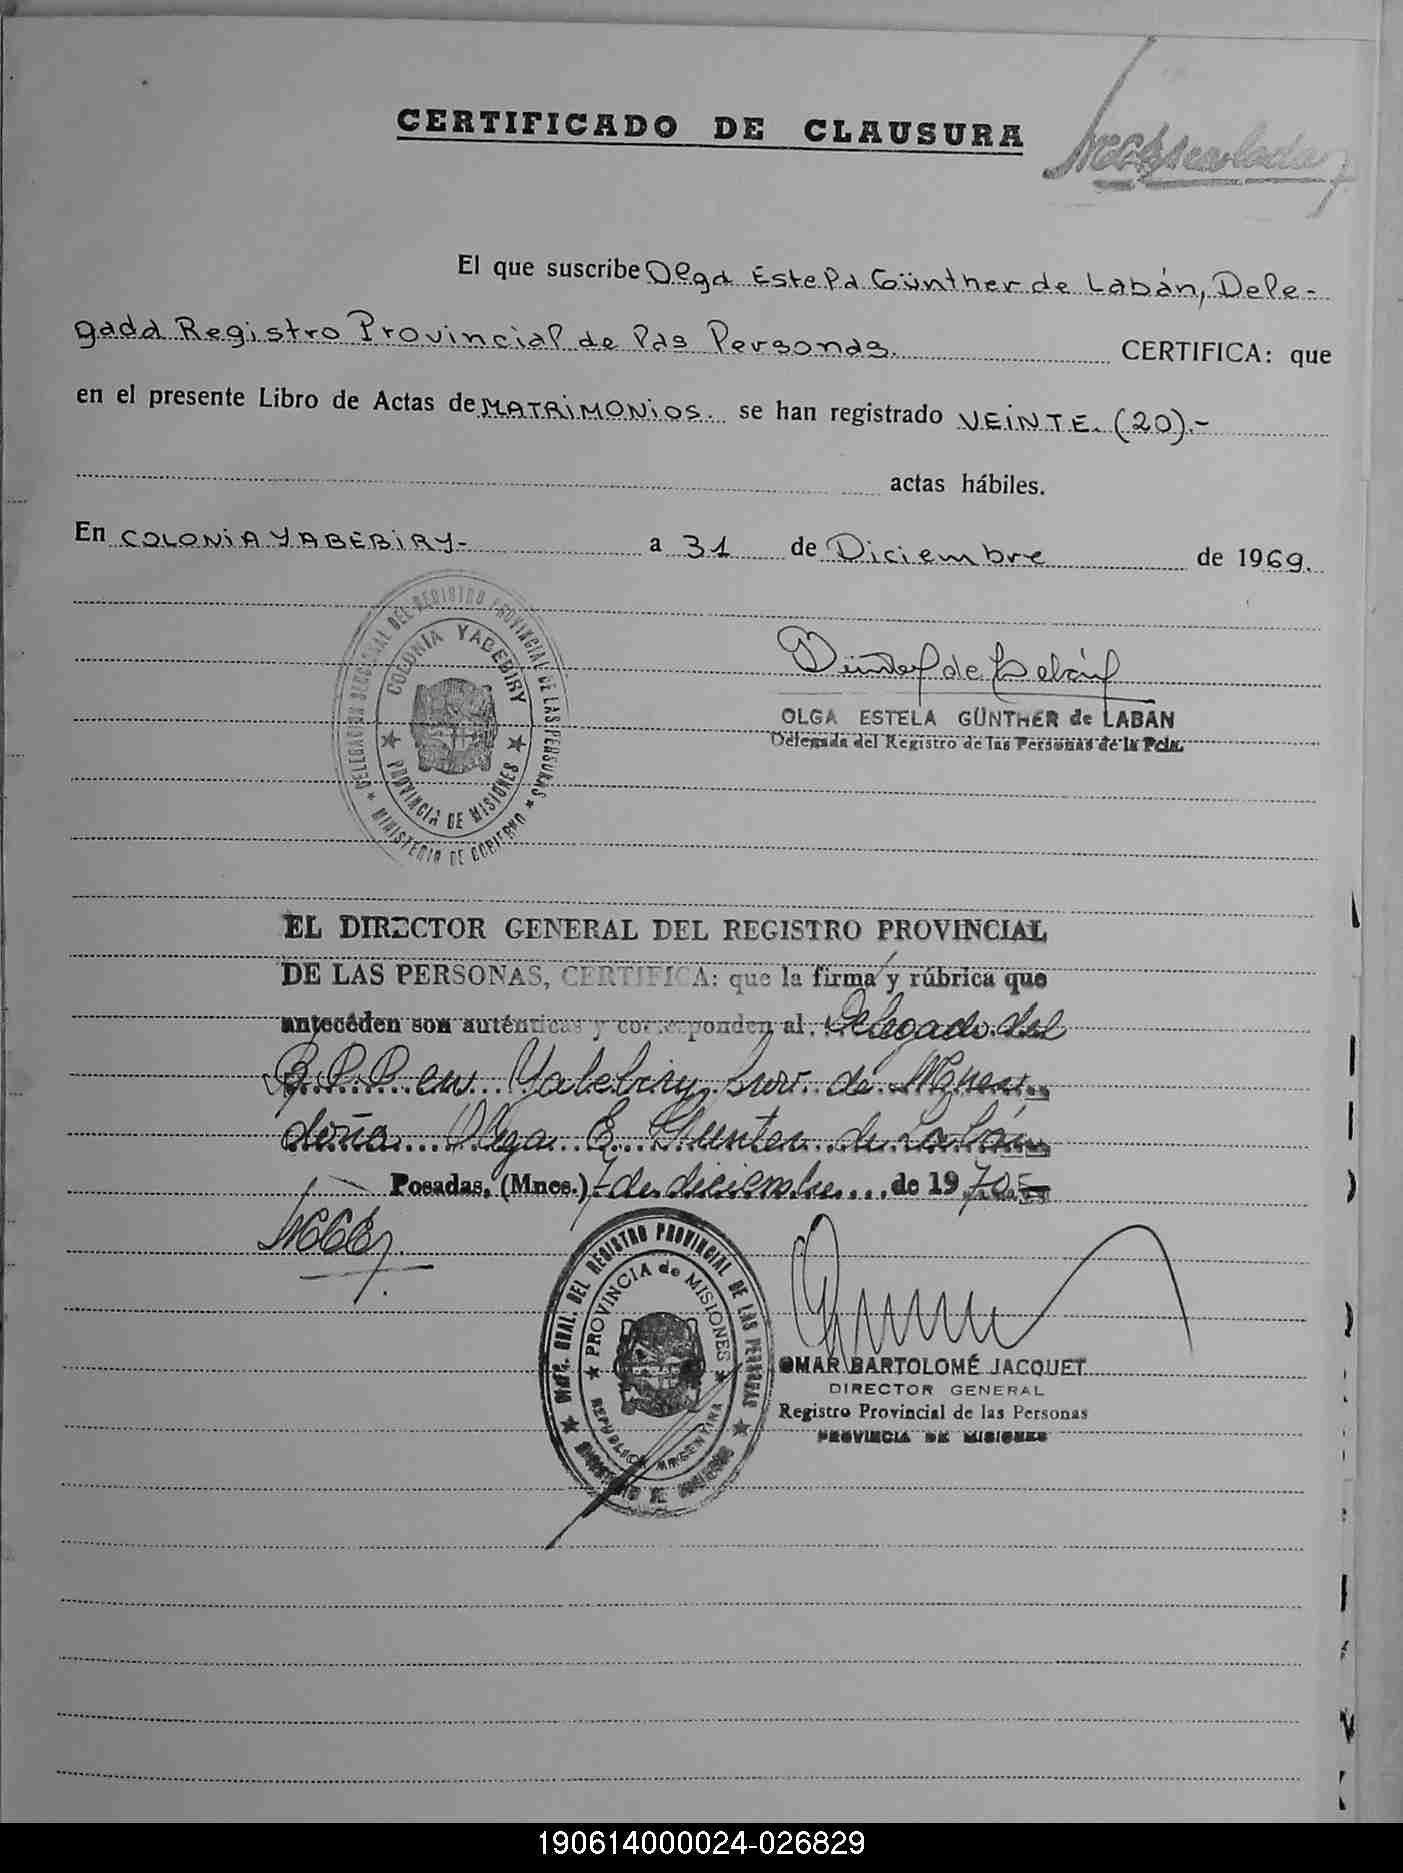 CERTIFICADO DE CLAUSURA
El que suscribe Olga Estela Günther de Labán, Dele-
gada Registro Provincial de las Personas. CERTIFICA: que
en el presente Libro de Actas de MATRIMONIOS. se han registrado VEINTE. (20).-
actas hábiles.
En COLONIA YABEBIRY- a 31 de Diciembre de 1969.
DELEGACION SECCIONAL DEL REGISTRO PROVINCIAL DE LAS PERSONAS
COLONIA YABEBIRY
PROVINCIA DE MISIONES
MINISTERIO DE GOBIERNO
OLGA ESTELA GÜNTHER de LABAN
Delegada del Registro de las Personas de la Pcia.
EL DIRECTOR GENERAL DEL REGISTRO PROVINCIAL
DE LAS PERSONAS, CERTIFICA: que la firma y rúbrica que
anteceden son auténticas y corresponden al Delegado del
R.P.P. en Yabebiry
doña Olga E. Gunter de Labán
Posadas, (Mnes.) 7 de diciembre de 1970
DIREC. GRAL. DEL REGISTRO PROVINCIAL DE LAS PERSONAS
PROVINCIA de MISIONES
REPUBLICA ARGENTINA
MINISTERIO DE GOBIERNO
OMAR BARTOLOMÉ JACQUET
DIRECTOR GENERAL
Registro Provincial de las Personas
PROVINCIA DE MISIONES
190614000024-026829